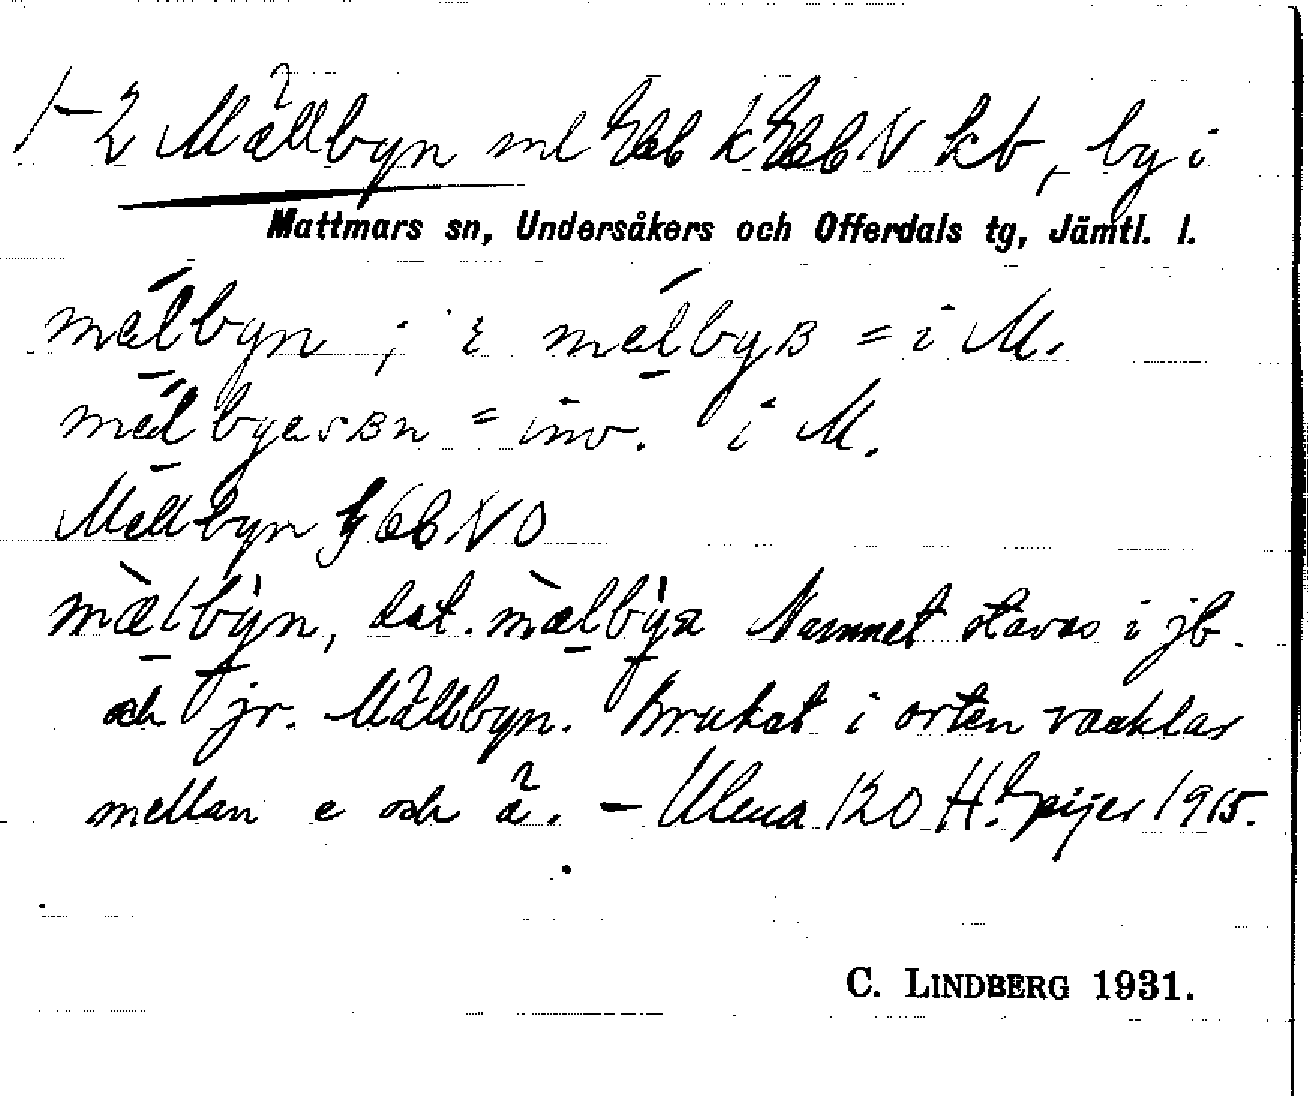 1-2 Mällbyn ml Geb k Geb N kb, by i
Mattmars sn, Undersåkers och Offerdals tg, Jämtl. l.
mælbyn ; i mælbyʙ = i M.
mælbyasʙn = inv. i M.
Mellbyn GebNO
mælbyn, dat. mælbyn Namnet stavas i jb.
och jr. Mällbyn. Bruket i orten vacklar
mellan e och ä. – Ulma 120 H. Geijer 1915.
C. LINDBERG 1931.